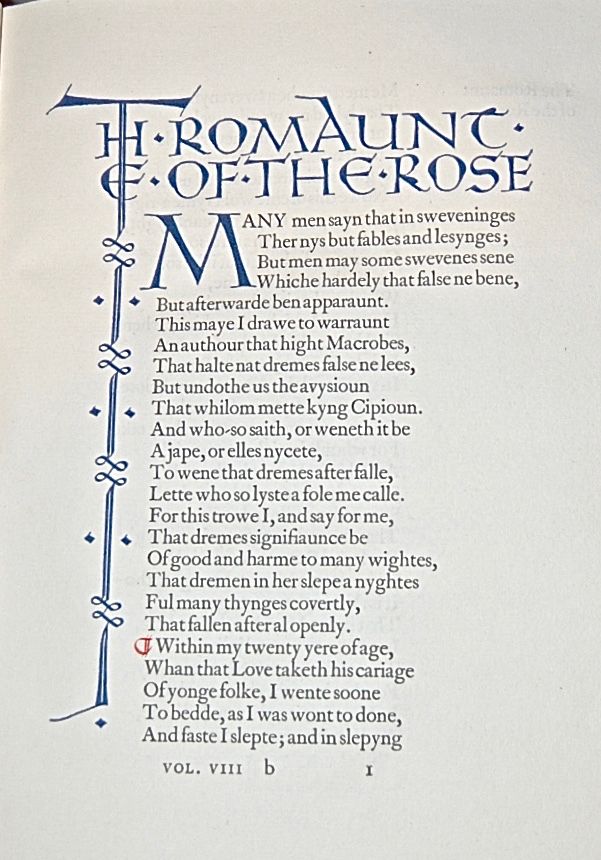 TH·ROMAUNT·
E·OF·THE·ROSE
MANY men sayn that in sweveninges
Ther nys but fables and lesynges;
But men may some swevenes sene
Whiche hardely that false ne bene,
But afterwarde ben apparaunt.
This maye I drawe to warraunt
An authour that hight Macrobes,
That halte nat dremes false ne lees,
But undothe us the avysioun
That whilom mette kyng Cipioun.
And who-so saith, or weneth it be
A jape, or elles nycete,
To wene that dremes after falle,
Lette who so lyste a fole me calle.
For this trowe I, and say for me,
That dremes signifiaunce be
Of good and harme to many wightes,
That dremen in her slepe a nyghtes
Ful many thynges covertly,
That fallen after al openly.
¶ Within my twenty yere of age,
Whan that Love taketh his cariage
Of yonge folke, I wente soone
To bedde, as I was wont to done,
And faste I slepte; and in slepyng
VOL. VIII b 1